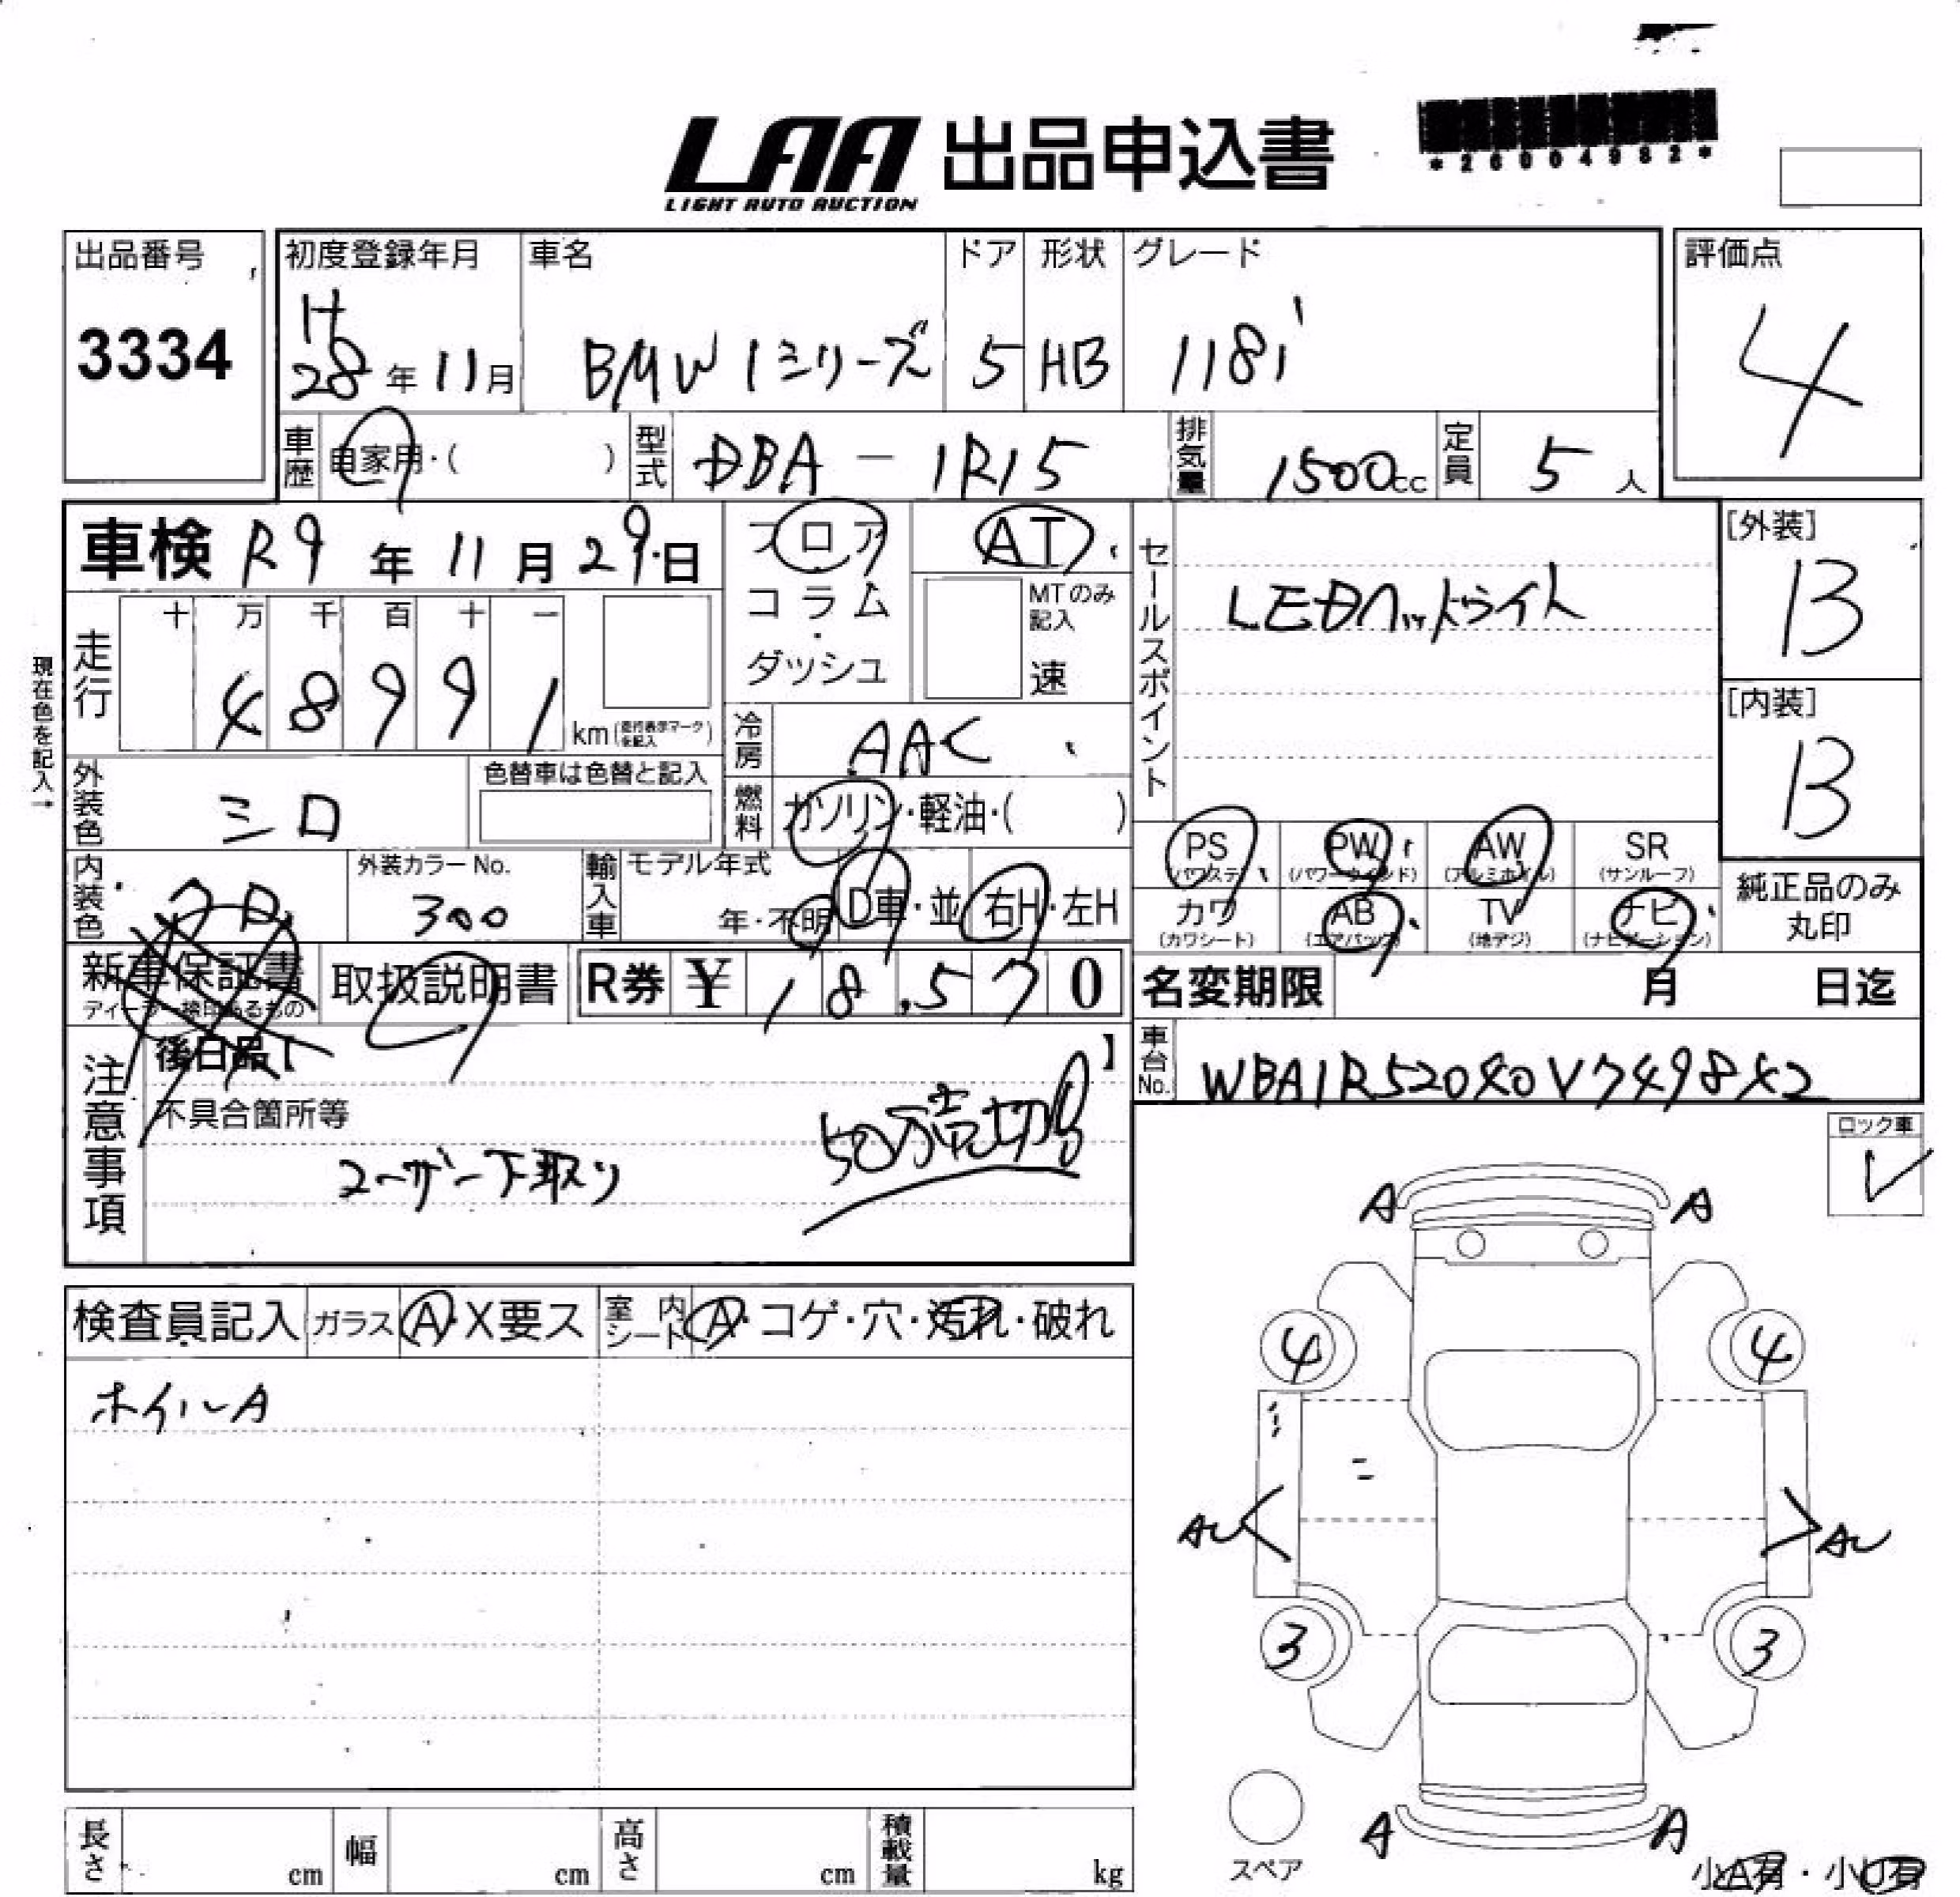 LAA 出品申込書
LIGHT AUTO AUCTION
*26004982*
出品番号 初度登録年月 車名 ドア 形状 グレード 評価点
3334 H28年11月 BMW 1シリーズ 5 HB 118i 4
車歴 自家用・( ) 型式 DBA-1R15 排気量 1500cc 定員 5人
車検 R9年11月29日 フロア AT セールスポイント [外装]
コラム・ダッシュ MTのみ記入 速 LEDヘッドライト B
現在色を記入→
走行 十 万 千 百 十 一 [内装]
48991 km (走行表示マークを記入) B
冷房 AAC
外装色 シロ 色替車は色替と記入 燃料 ガソリン・軽油・( )
PS (パワステ) PW (パワーウインド) AW (アルミホイル) SR (サンルーフ)
内装色 クロ 外装カラーNo. 300 輸入車 モデル年式 年・不明 D車・並 右H・左H
カワ (カワシート) AB (エアバッグ) TV (地デジ) ナビ (ナビゲーション) 純正品のみ丸印
新車保証書 ディーラー検印あるもの 取扱説明書 R券 ¥ 18,570 名変期限 月 日迄
注意事項 後日品【 】 車台No. WBA1R52040V749842
不具合箇所等 50万売切り
ユーザー下取り
ロック車
検査員記入 ガラス A・X要ス 室内シート A・コゲ・穴・汚れ・破れ
ホイルA
A A
4 4
AU AU
3 3
A A
スペア
小A有・小U有
長さ cm 幅 cm 高さ cm 積載量 kg